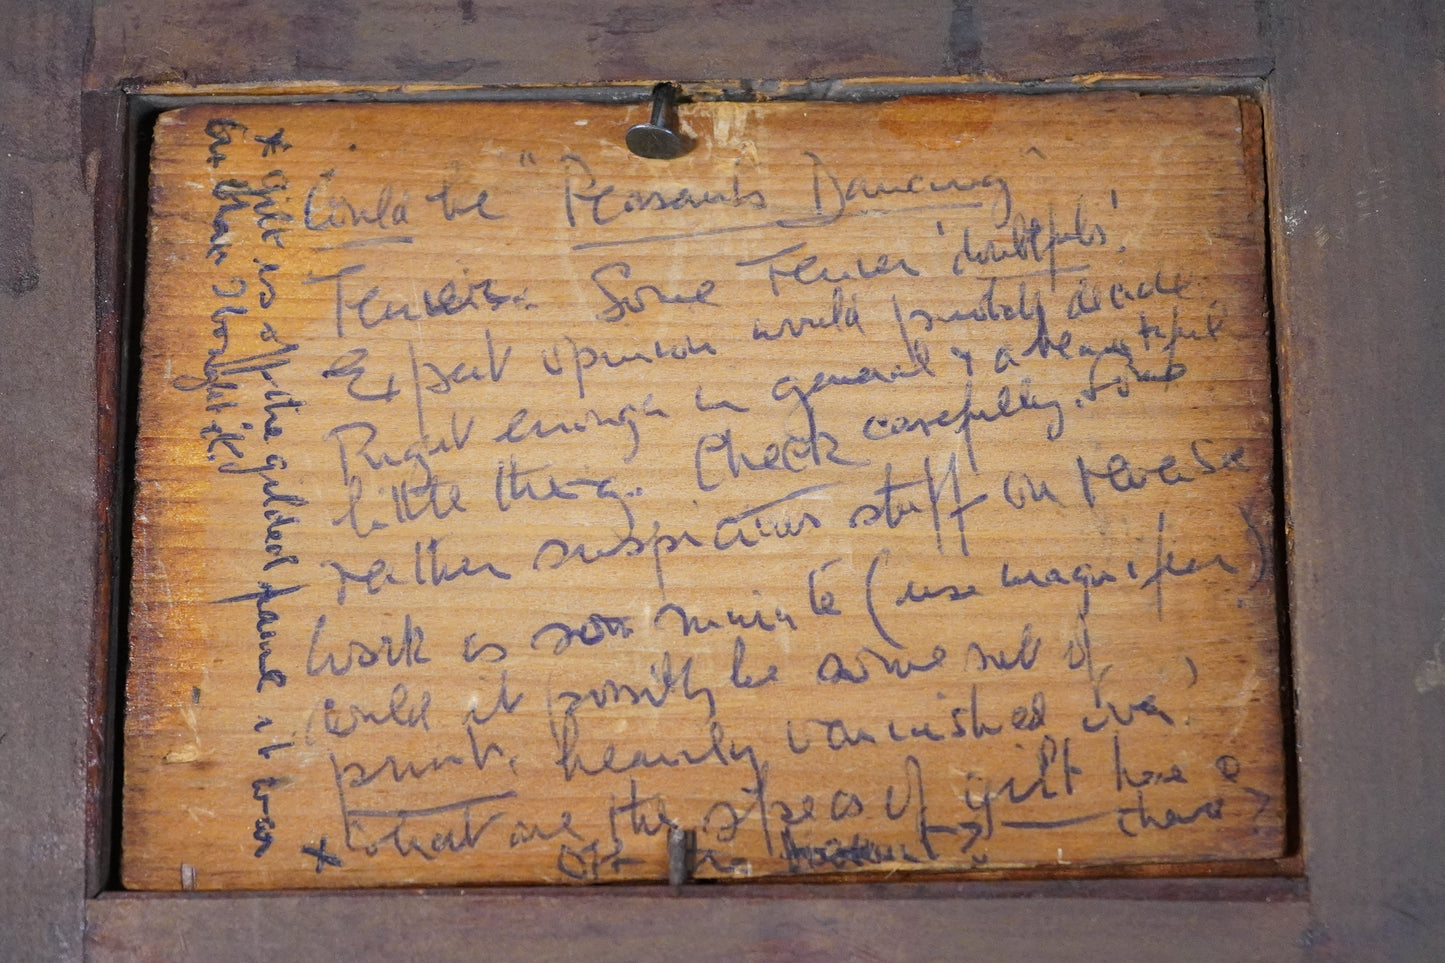 Could be "Peasants Dancing"
Teniers. Some Tenier 'doubtfuls'.
Expert opinion would probably decide.
Right enough in general & a beautiful
little thing. Check carefully. Some
rather suspicious stuff on reverse
Work is so minute (use magnifier)
could it possibly be some sort of
print, heavily varnished over?
* What are the specs of gilt here &
there?
* gilt is off the gilded frame it was
in when I bought it.